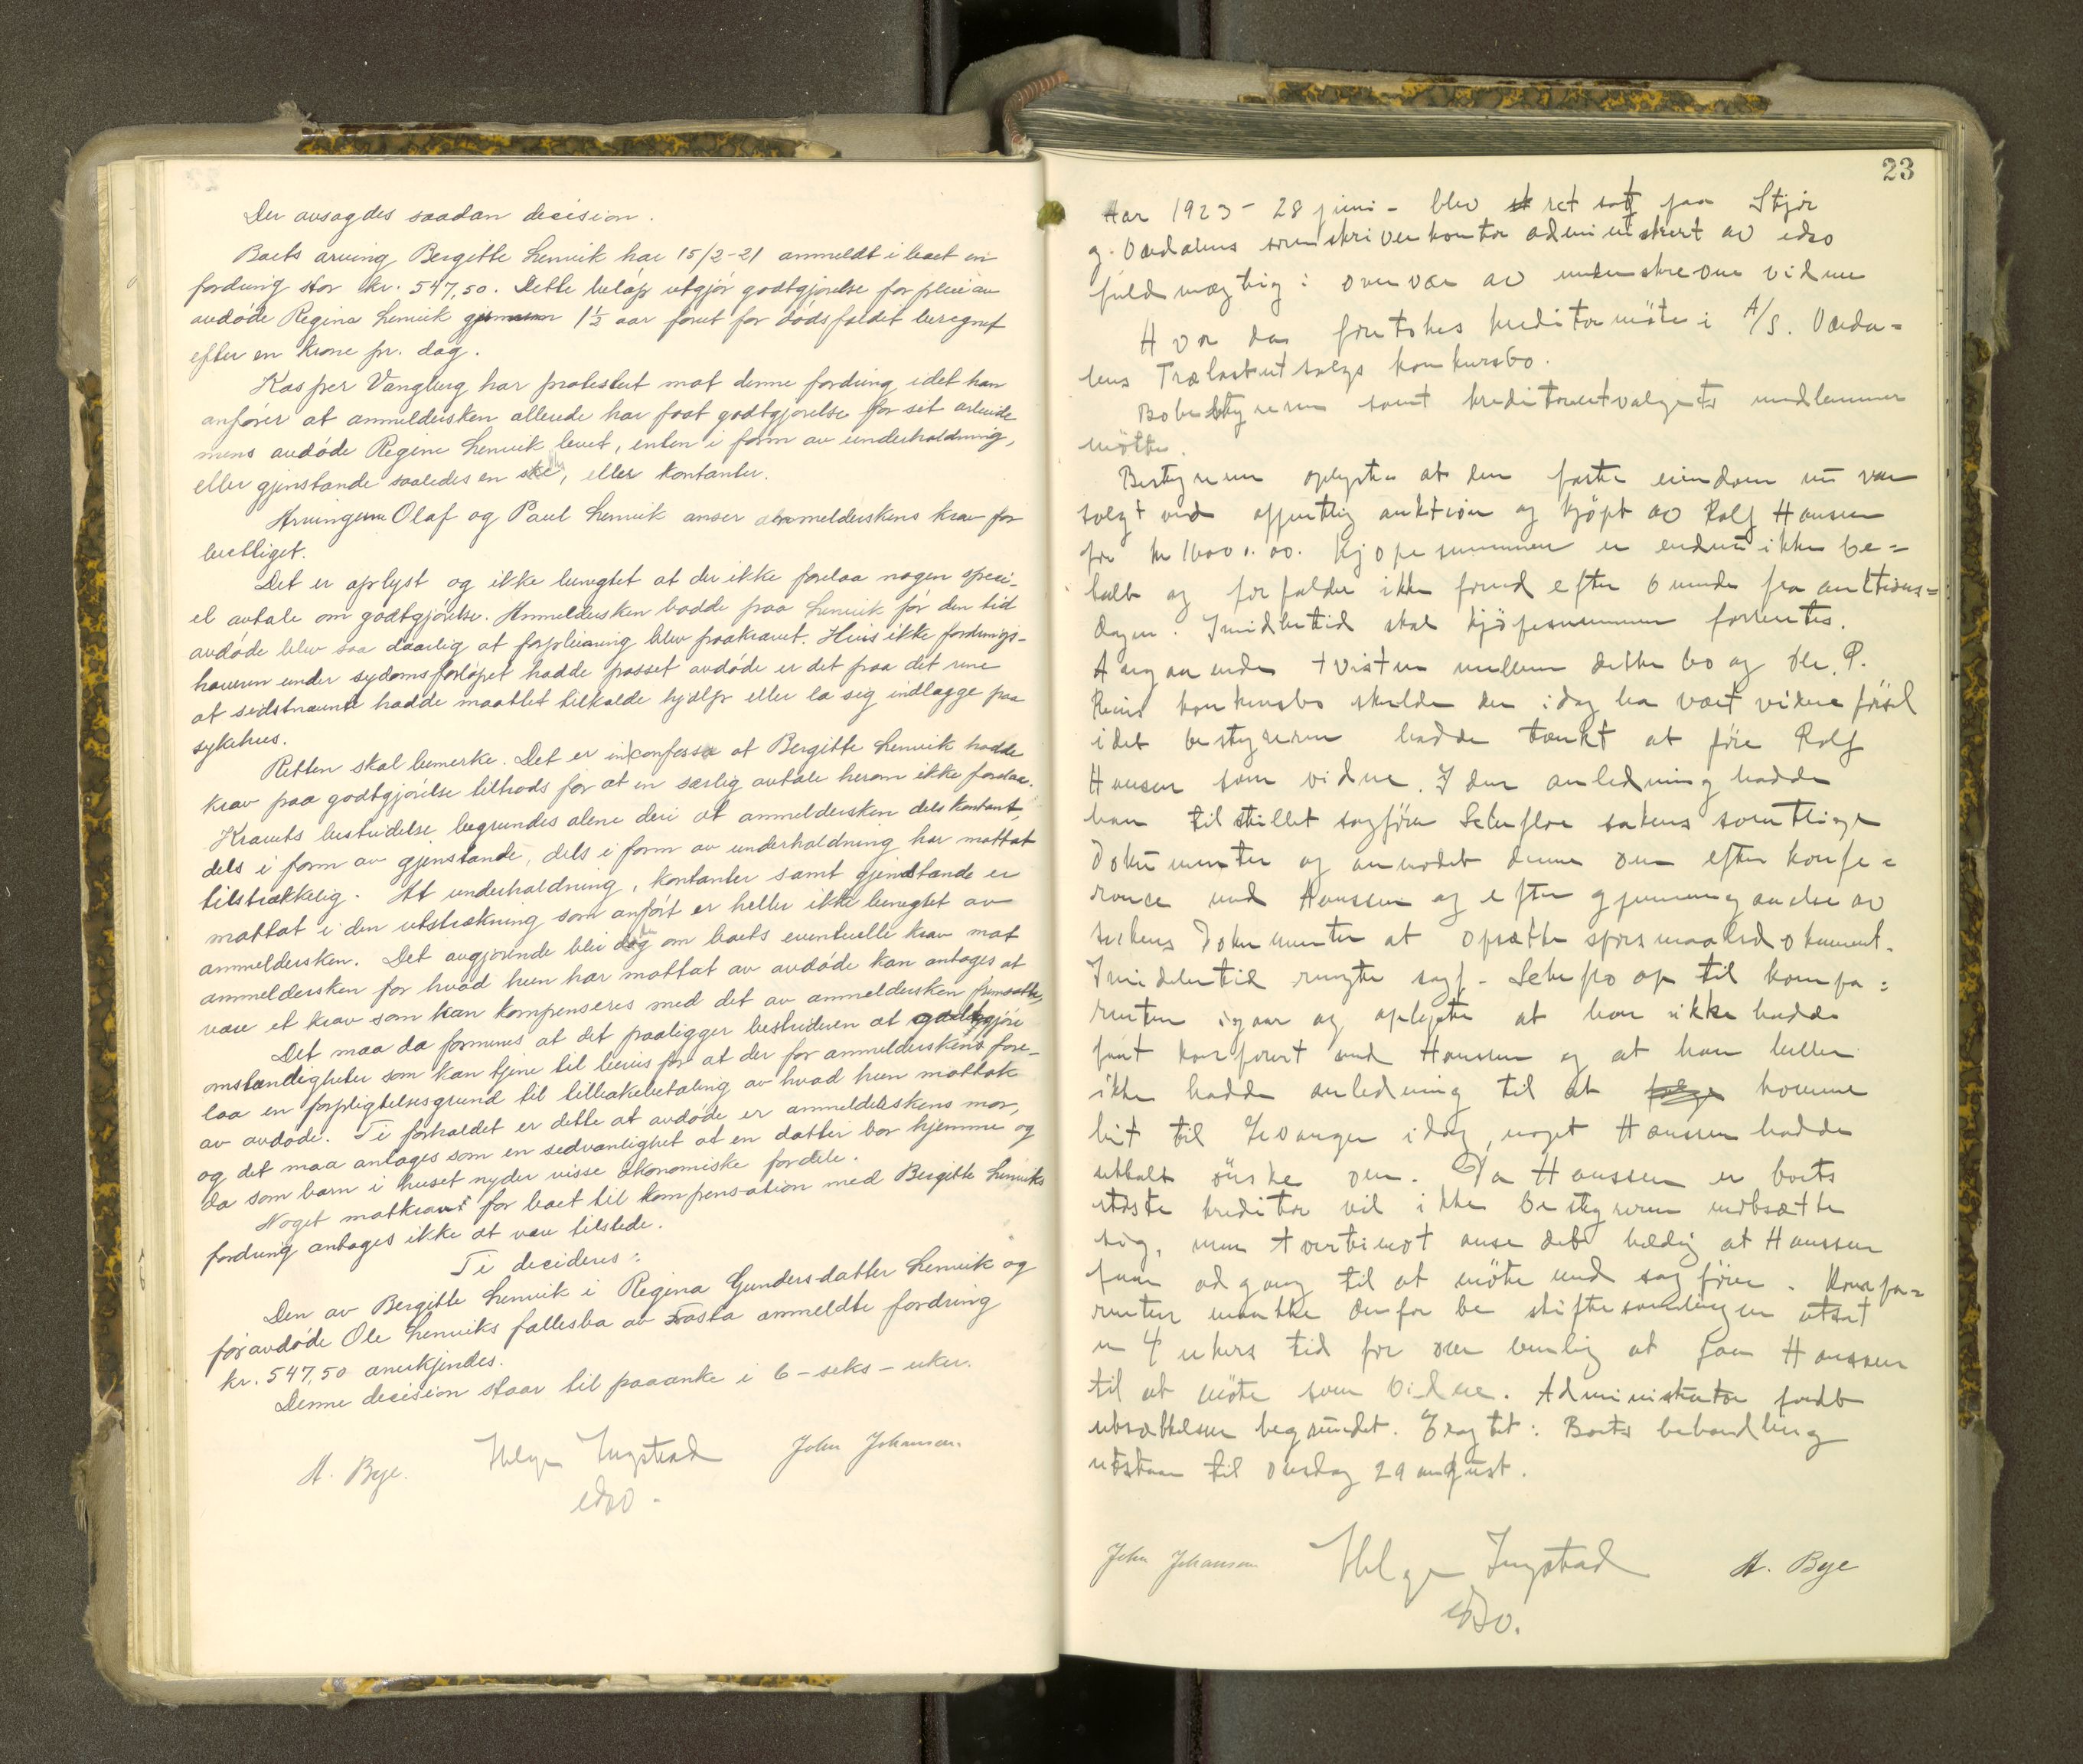 Der avsagdes saadan decision.
Boets arving Bergitte Lenvik har 15/2-21 anmeldt i boet en
fordring stor kr. 547,50. Dette beløp utgjør godtgjørelse for pleie av
avdøde Regina Lenvik 1½ aar forut for dødsfaldet beregnet
efter en krone pr. dag.
Kasper Vangberg har protestert mot denne fordring idet han
anfører at anmeldersken allerede har faat godtgjørelse for sit arbeide
mens avdøde Regine Lenvik levet, enten i form av underholdning,
eller gjenstande saaledes en , eller kontanter.
Arvingerne Olaf og Paul Lenvik anser anmelderskens krav for
berettiget.
Det er oplyst og ikke benegtet at der ikke forelaa nogen speci-
el avtale om godtgjørelse. Anmeldersken bodde paa Lenvik før den tid
avdøde blev saa daarlig at forpleining blev paakrævet. Hvis ikke fordrings-
haveren under sydomsforløpet hadde passet avdøde er det paa det rene
at sidstnævnte hadde maattet tilkalde hjælp eller la sig indlægge paa
sykehus.
Retten skal bemerke. Det er in confesso at Bergitte Lenvik hadde
krav paa godtgjørelse tiltrods for at en særlig avtale herom ikke forelaa.
Kravets bestridelse begrundes alene deri at anmeldersken dels kontant,
dels i form av gjenstande, dels i form av underholdning har mottat
tilstrækkelig. At underholdning, kontanter samt gjenstande er
mottat i den utstrækning som anført er heller ikke benegtet av
anmeldersken. Det avgjørende blir da om boets eventuelle krav mot
anmeldersken for hvad hun har mottat av avdøde kan antages at
være et krav som kan kompenseres med det av anmeldersken fremsatte,
Det maa da formenes at det paaligger bestrideren at godtgjøre
omstændigheter som kan tjene til bevis for at der for anmelderskens fore-
laa en forpligtelsesgrund til tilbakebetaling av hvad hun mottok
av avdøde. Ti forholdet er dette at avdøde er anmelderskens mor,
og det maa antages som en sedvanlighet at en datter bor hjemme og
da som barn i huset nyder visse økonomiske fordele.
Noget motkrav for boet til kompensation med Bergitte Lenviks
fordring antages ikke at være tilstede.
Ti decideres:
Den av Bergitte Lenvik i Regina Gundersdatter Lenvik og
føravdøde Ole Lenviks fællesbo av anmeldte fordring
kr. 547,50 anerkjendes.
Denne decision staar til paaanke i 6 - seks - uker.
A. Bye. Helge Ingstad John Johansen.
edsv.
23
Aar 1923 - 28 juni - blev ret sat paa Stjør
og Værdalens sorenskriverkontor administrert av edsv
fuldmægtig i overvær av underskrevne vidner
Hvor da foretokes kreditormøte i A/S. Værda=
lens Trælastutsalgs konkursbo.
Bobestyreren samt kreditorutvalgets medlemmer
møtte.
Bestyreren oplyste at den faste eiendom nu var
solgt ved offentlig auktion og kjøpt av Rolf Hansen
for kr 16000.00. Kjøpesummen er endnu ikke be=
talt og forfalder ikke forend efter 6 uker fra auktions=
dagen. Imidlertid skal kjøpesummen forrentes.
Angaaende tvisten mellem dette bo og Ole P.
Reins konkursbo skulde der idag ha vært vidneførsel
idet bestyreren hadde tænkt at føre Rolf
Hansen som vidne. I den anledning hadde
han tilstillet sagfører Selnflo sakens samtlige
dokumenter og anmodet denne om efter konfe=
rance med Hanssen og efter gjennemgaaelse av
sakens dokumenter at opsætte spørsmaalsdokument.
Imidlertid ringte sagf. op til kompa=
renten igaar og oplyste at han ikke hadde
faat konferert med Hanssen og at han heller
ikke hadde anledning til at komme
hit til Levanger idag, noget Hanssen hadde
uttalt ønske om. Da Hanssen er boets
største kreditor vil ikke bestyreren motsætte
sig, men tvertimot anse det heldig at Hanssen
faar adgang til at møte med sagfører. Kompa=
renten maatte derfor be skiftesamlingen utsat
en 4 ukers tid for om mulig at faa Hanssen
til at møte som vidne. Administrator fandt
utsættelsen begrundet. Eragtet: Boets behandling
utstaar til onsdag 29 august.
John Johansen Helge Ingstad A. Bye
edsv.